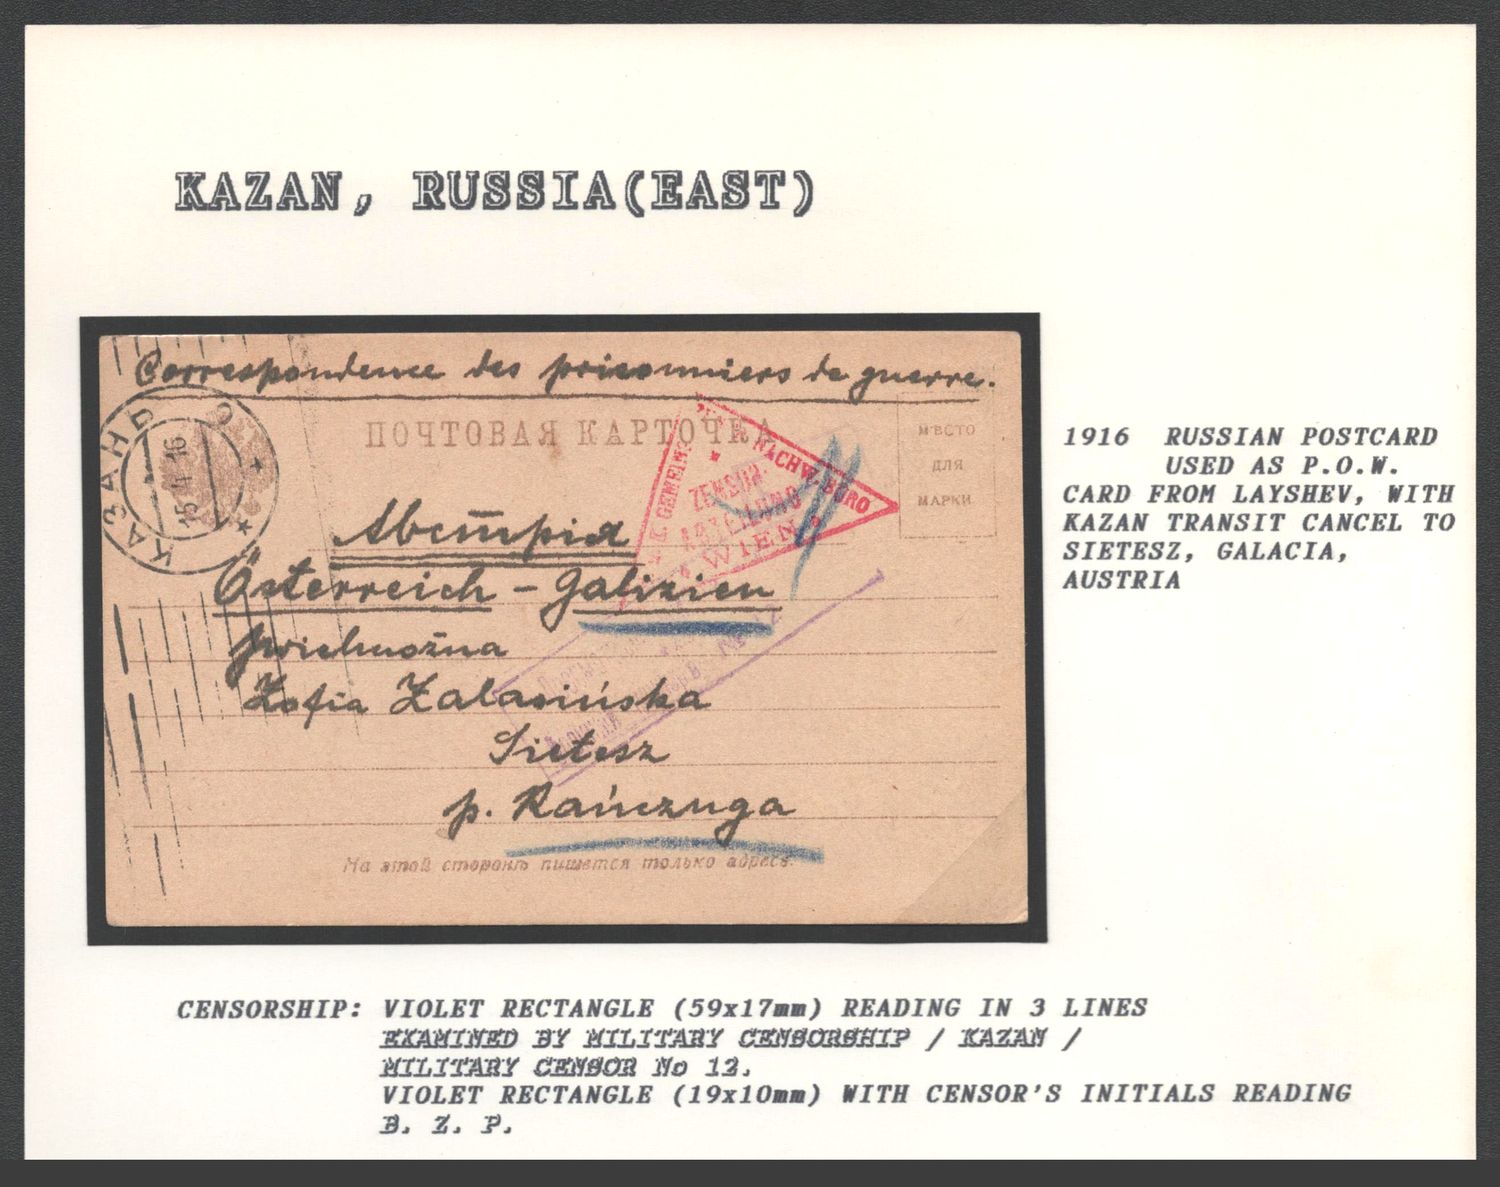 KAZAN, RUSSIA(EAST)
Correspondence des prisonniers de guerre.
ПОЧТОВАЯ КАРТОЧКА
МѢСТО
ДЛЯ
МАРКИ
КАЗАНЬ
15 16
GEMEINS. NACHW. BÜRO
ZENSUR
ABTEILUNG
WIEN
Австрія
Österreich - Galizien
Wielmożna
Zofia Zalasińska
Sietesz
p. Kańczuga
№ 12
На этой сторонѣ пишется только адресъ.
1916 RUSSIAN POSTCARD
USED AS P.O.W.
CARD FROM LAYSHEV, WITH
KAZAN TRANSIT CANCEL TO
SIETESZ, GALACIA,
AUSTRIA
CENSORSHIP: VIOLET RECTANGLE (59x17mm) READING IN 3 LINES
EXAMINED BY MILITARY CENSORSHIP / KAZAN /
MILITARY CENSOR No 12.
VIOLET RECTANGLE (19x10mm) WITH CENSOR'S INITIALS READING
B. Z. P.